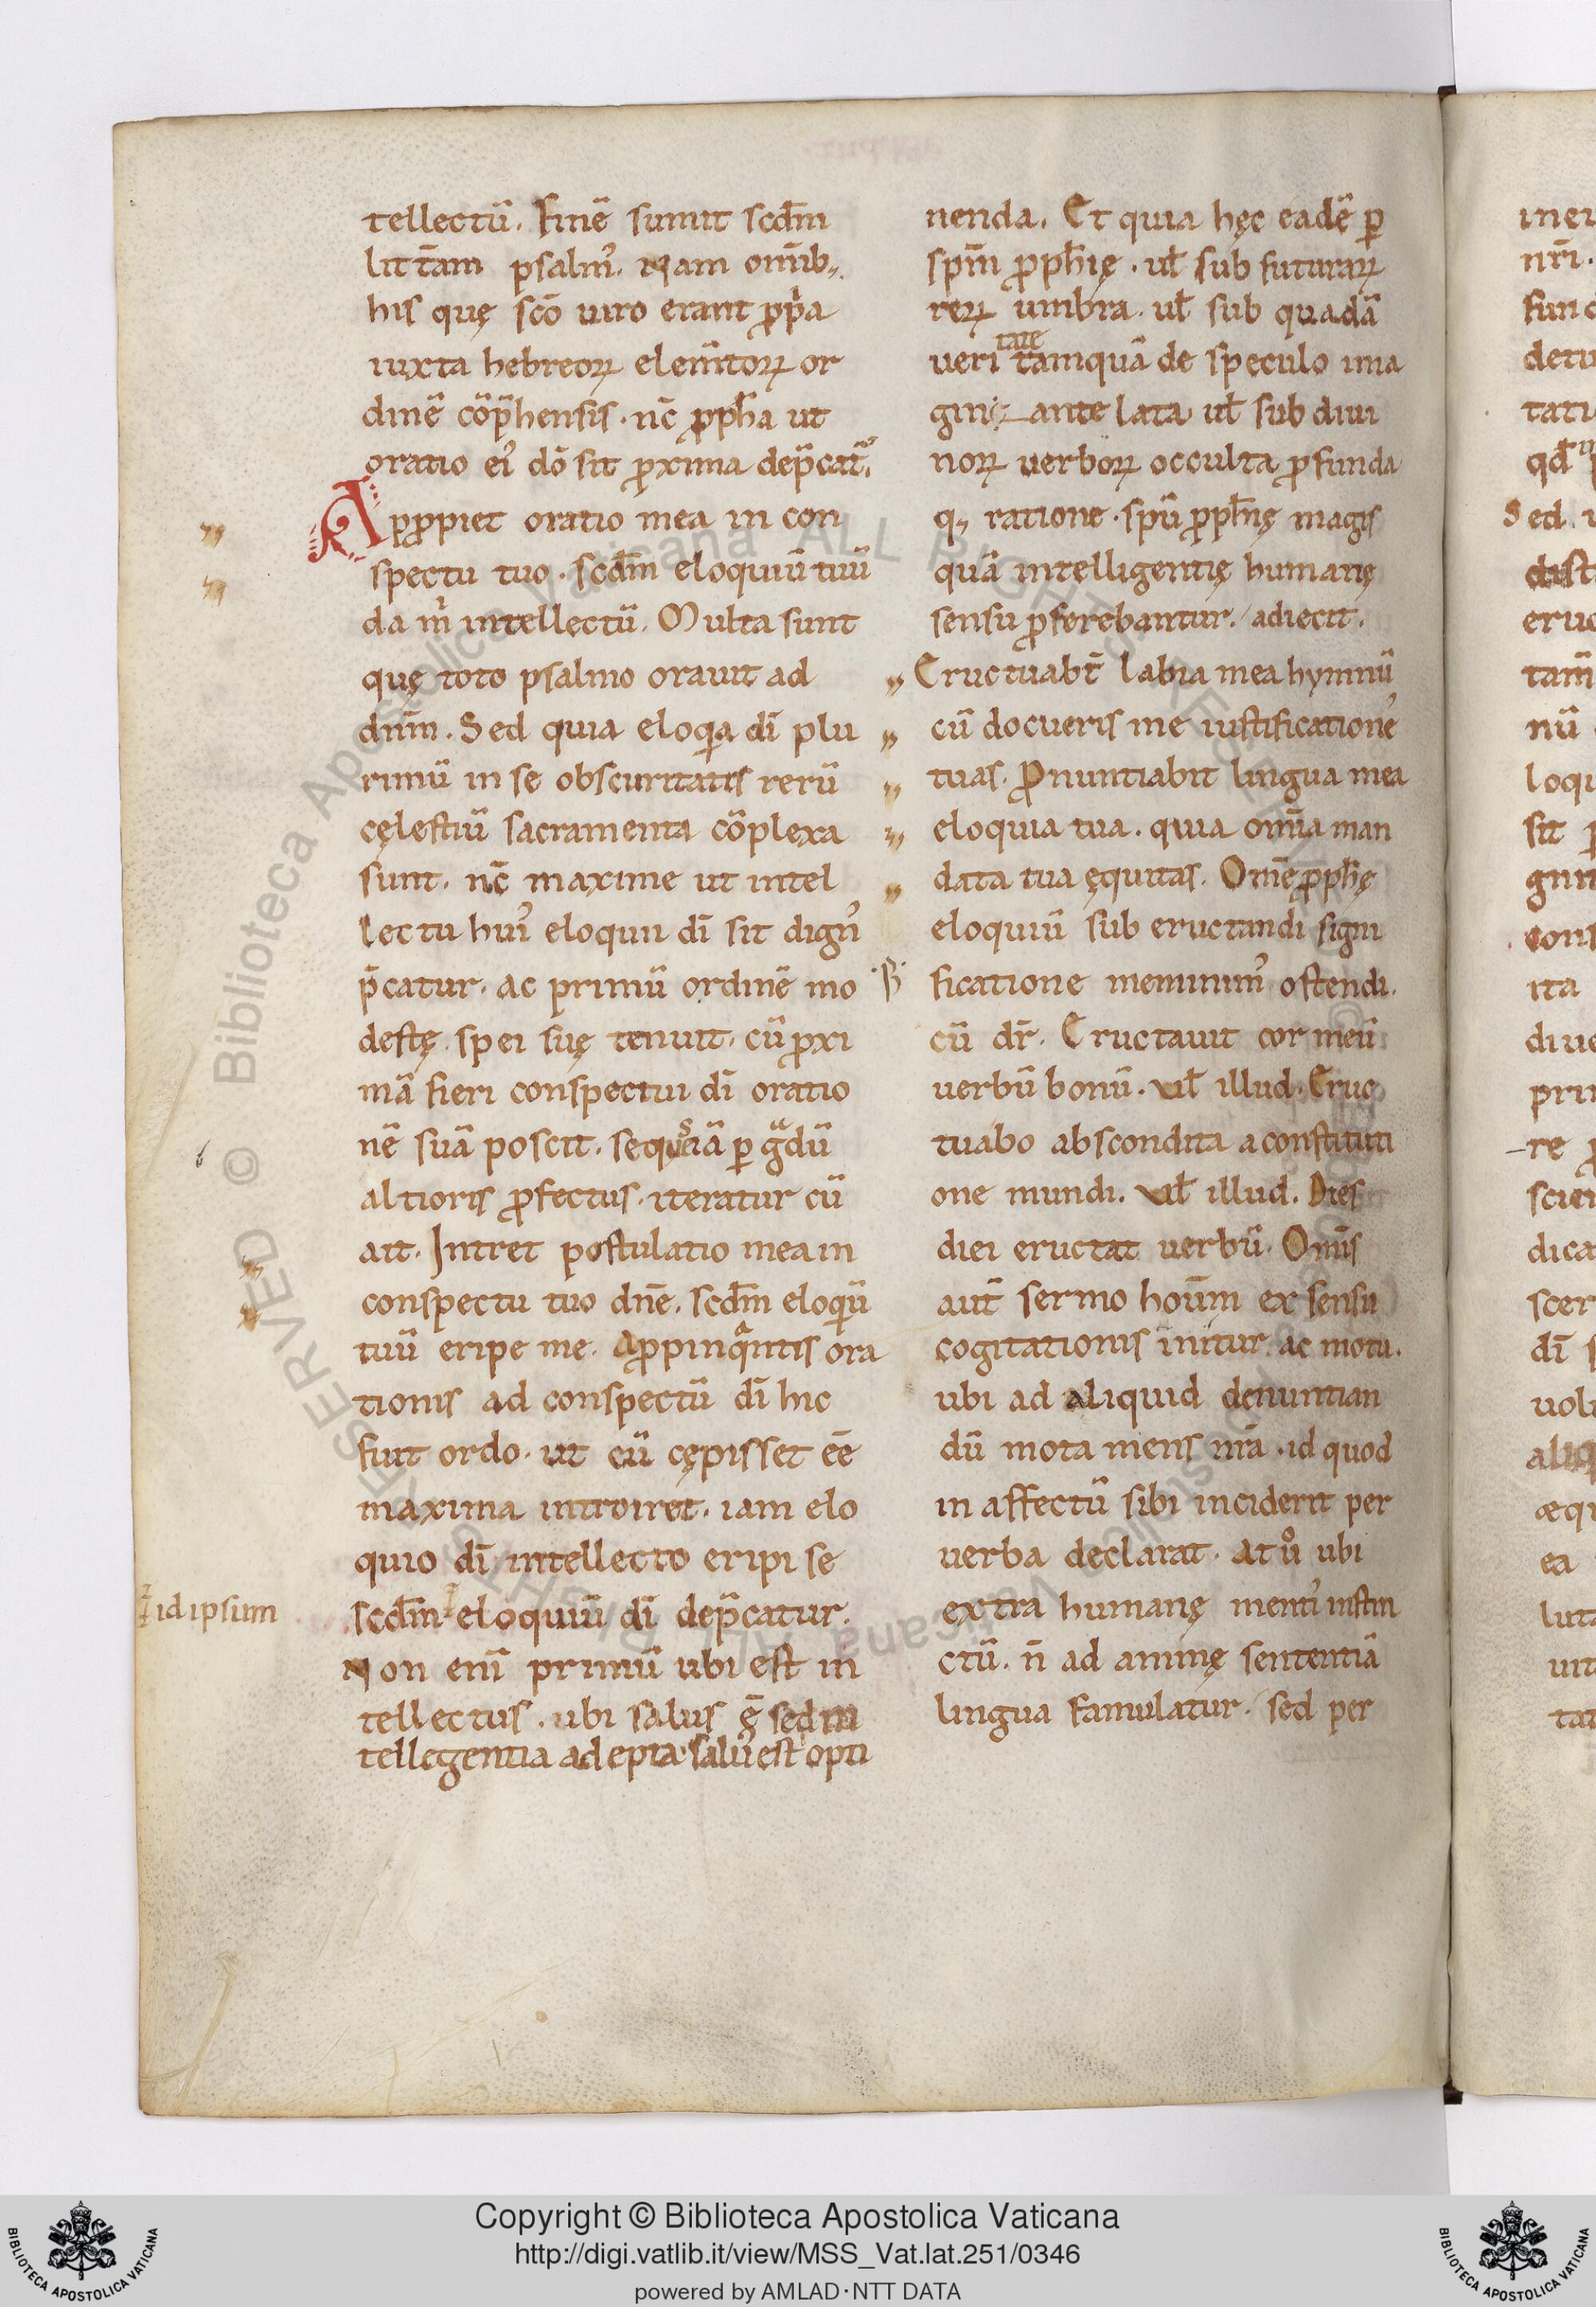 tellectũ. Finẽ sumit scd̄m
litt̄am psalm᾽. Nam om̄ib,,
his quę sc̄o uiro erant ꝓp̄a
iuxta hebreoꝝ elem̄toꝝ or
dinẽ cõp̄hensis. nc̄ ꝓpħa ut
oratio ei᾽ dō sit ꝓxima dep̄cat᷑.
Apꝓpiet oratio mea in con
spectu tuo. scd̄m eloquiũ tuũ
da m̍ intellectũ. Multa sunt
quę toto psalmo orauit ad
dn̄m. Sed quia eloq̇a dī plu
rimũ in se obscuritatis rerũ
cęlestiũ sacramenta cõplexa
sunt. nc̄ maxime ut intel
lectu hui᾽ eloquii dī sit dign᾽
p̄catur. ac primũ ordinẽ mo
destę spei suę tenuit. cũ ꝓxi
mã fieri conspectui dī oratio
nẽ suã poscit. sequaã ꝑ gͣdũ
altioris ꝓfectus. iteratur cũ
ait. Intret postulatio mea in
conspectu tuo dn̄e. scd̄m eloq̇ũ
tuũ eripe me. Aꝓpinqͣntis ora
tionis ad conspectũ dī hic
fuit ordo. ut cũ cępisset ēe
maxima introiret. iam elo
quio dī intellecto eripi se
id ipsum
scd̄m eloquiũ dī dep̄catur.
Non enī primũ ubi est in
tellectus. ubi salus ę̄ sed in
tellegentia adepta salu᾽ est opti
nenda. Et quia hęc eadẽ ꝑ
sp̄m ꝓpħię. ul̄ sub futuraꝝ
reꝝ umbra. ul̄ sub quadã
tate
ueri tamquã de speculo ima
gini ante lata ul̄ sub diui
noꝝ uerboꝝ occulta ꝓfunda
q,, ratione. spũ ꝓpħię magis
quã intelligentię humanę
sensu ꝓferebantur. adiecit.
Eructuabt̄ labia mea hymnũ
cũ docueris me iustificatione᾽
tuas. Pronuntiabit lingua mea
eloquia tua. quia om̄ia man
data tua ęquitas. Om̄e ꝓpħę
eloquiũ sub eructandi signi
ficatione meminim᾽ ostendi.
cũ dr̄. Eructauit cor meũ
uerbũ bonũ. Vl̄ illud. Eruc
tuabo abscondita a constituti
one mundi. Vl̄ illud. Dies
diei eructat uerbũ. Om̄is
aut̄ sermo hoūm ex sensu
cogitationis initur ac motu.
ubi ad aliquid denuntian
dũ mota mens nr̄a. id quod
in affectũ sibi inciderit per
uerba declarat. At u̇ ubi
extra humanę menti᾽ instin
ctũ. n̄ ad animę sententiã
lingua famulatur. sed per
Copyright © Biblioteca Apostolica Vaticana
http://digi.vatlib.it/view/MSS_Vat.lat.251/0346
powered by AMLAD·NTT DATA